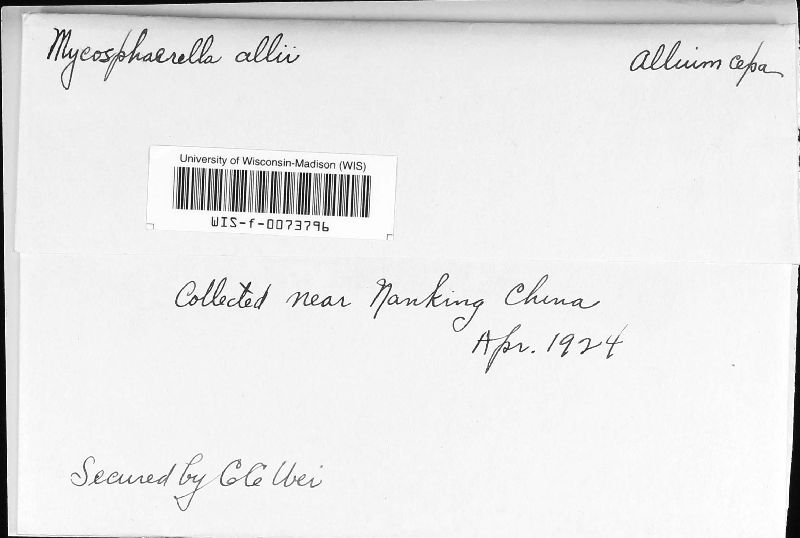 Mycosphaerella allii
Allium cepa
University of Wisconsin-Madison (WIS)
WIS-f-0073796
Collected near Nanking China
Apr. 1924
Secured by C C Wei